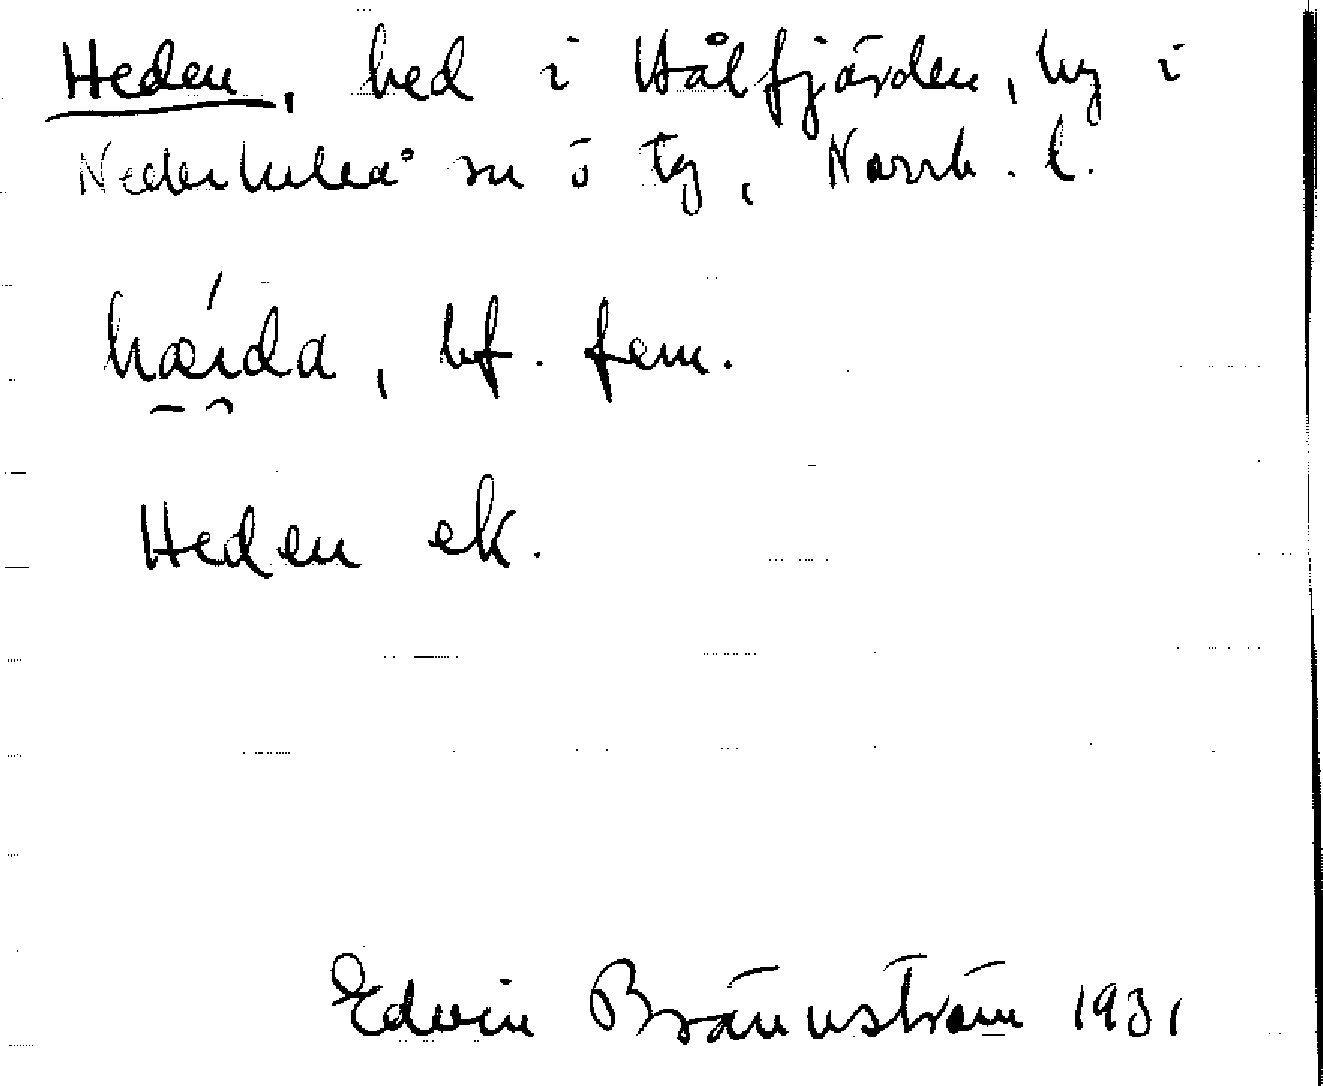 Heden, hed i Hålfjärden, by i
Nederluleå sn ö tg, Norrb. l.
hǽida, bf. fem.
Heden ek.
Edvin Brännström 1931